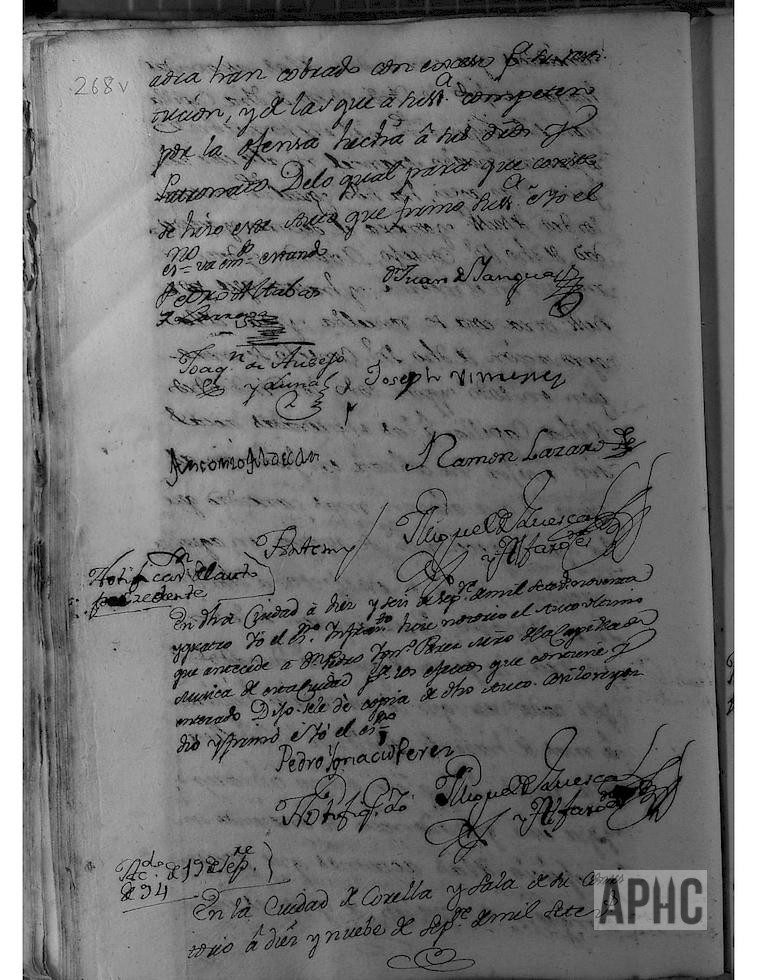 268v
adia han cobrado con exceso pr su resti
tucion, y de las que a Su Sª competen
por la ofensa hecha â sus dros y
Patronato. Delo qual para que conste
se hizo este Auto que firmo Su Sª è Yo el
es.no
Pedro Altabas
Juan de Sangues
Joaqn de Aubejo
y Luna
Joseph Ximenez
Antonio
Ramon Lazaro
Ante my
Miguel de Huesca
y Alfaro
Notificacon del auto
precedente
En dha Ciudad â diez y seis de Sepre de mil setz.s noventa
y quatro Yo el Es.no Infrasto hize notorio el Auto ultimo
que antecede a Dn Pedro Ygn.º Perez Mro de la Capilla de
Musica de esta Ciudad pª los efectos que conviene y
enterado Dijo se le de copia de dho Auto. Esto respon
dio y firmó è Yo el es.no
Pedro Ygnacio Perez
Notifiq.do
Miguel de Huesca
y Alfaro
de 19 de Sepre
de 94
En la Ciudad de Corella y Sala de su Consis
torio â diez y nuebe de Sepre de mil sete
APHC